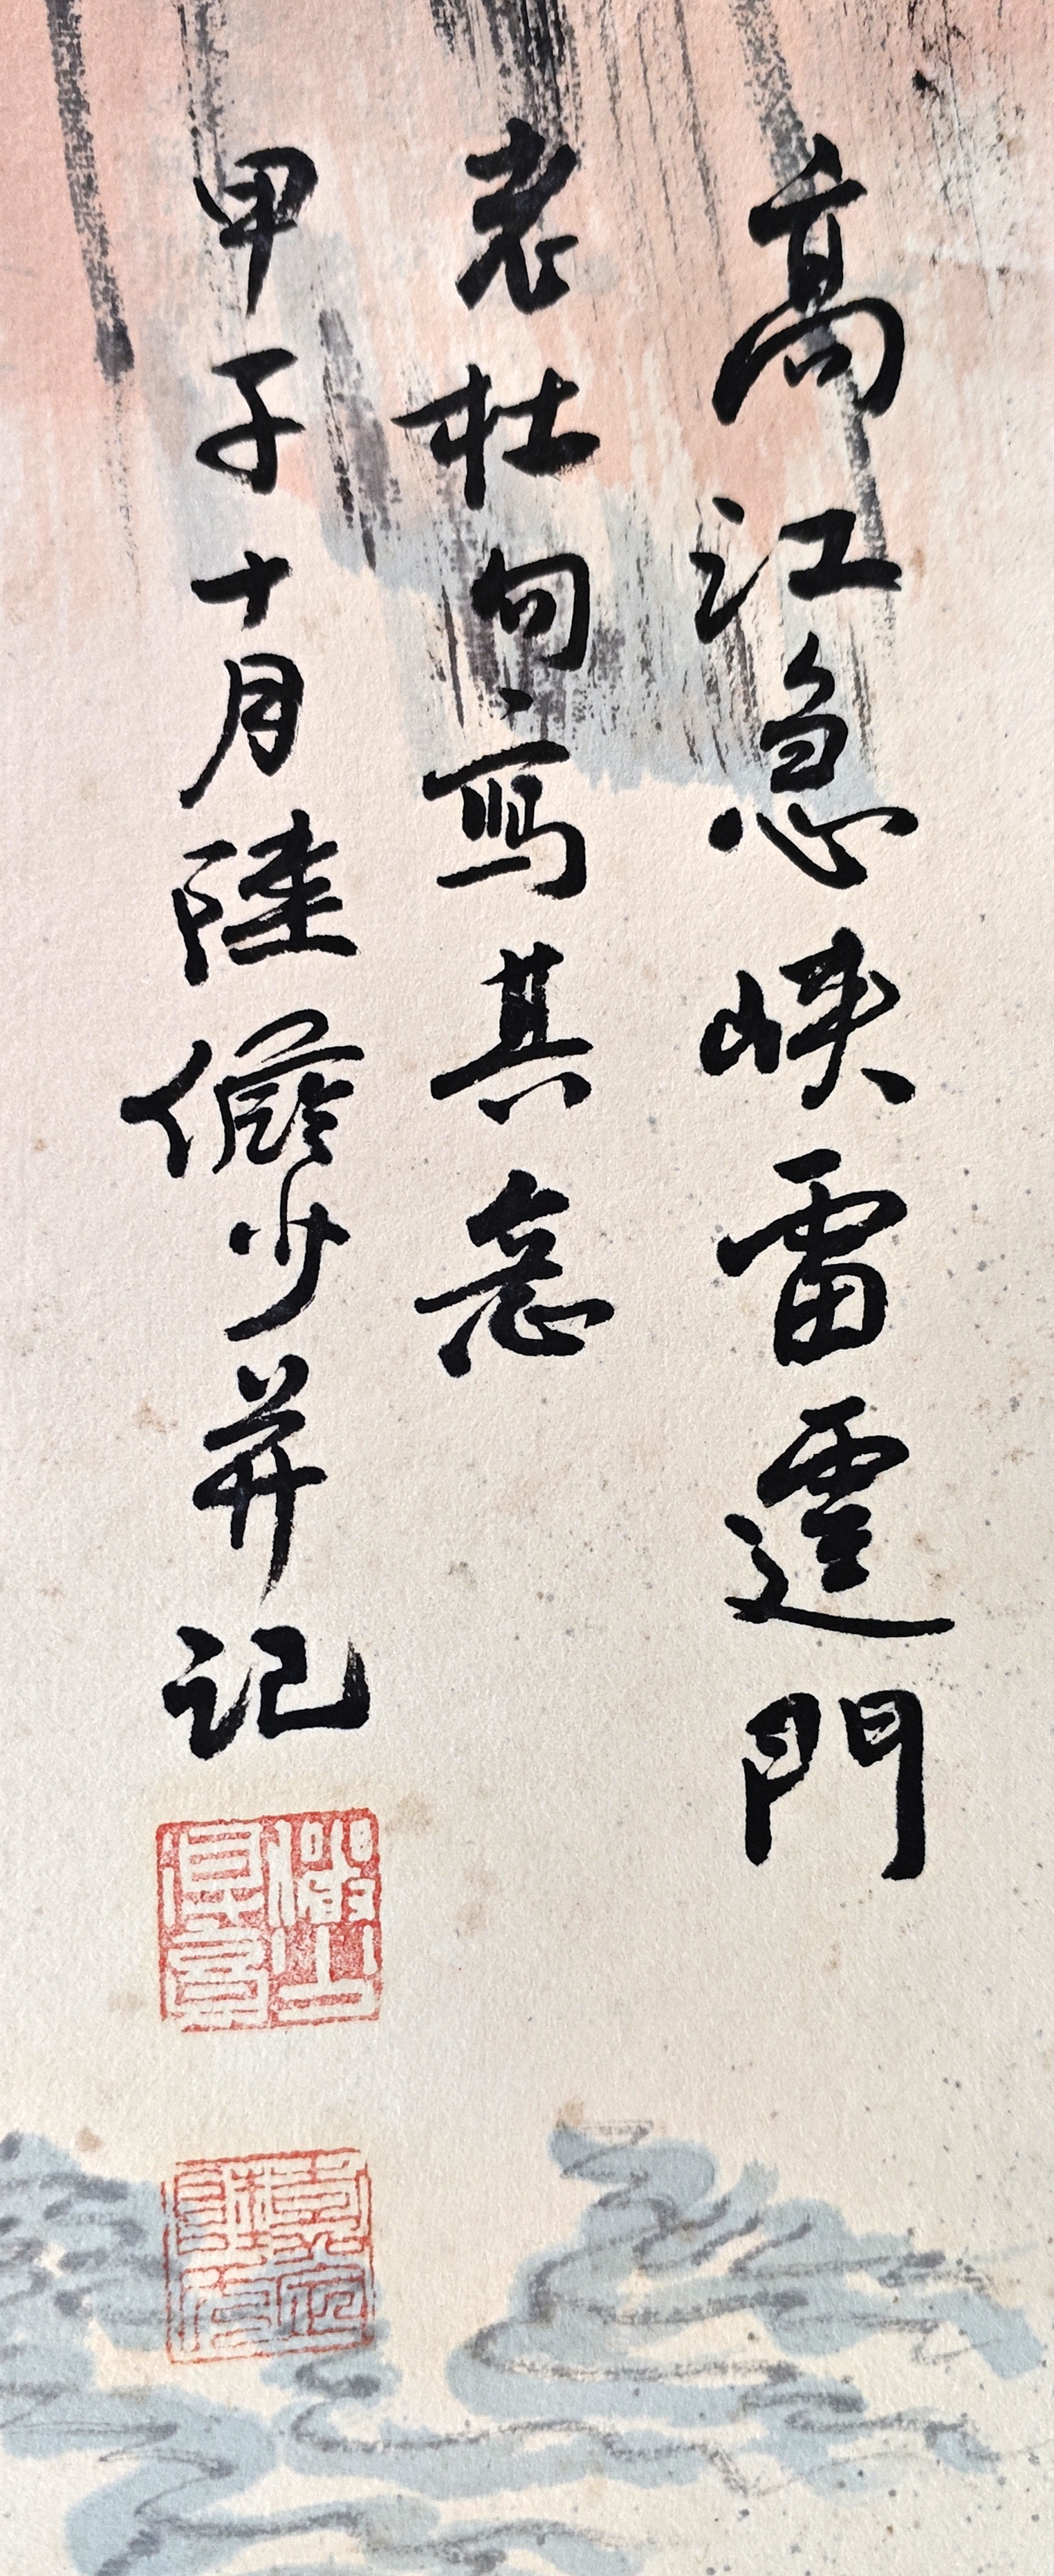 高江急峽雷霆門
老杜句寫其意
甲子十月陸儼少并記